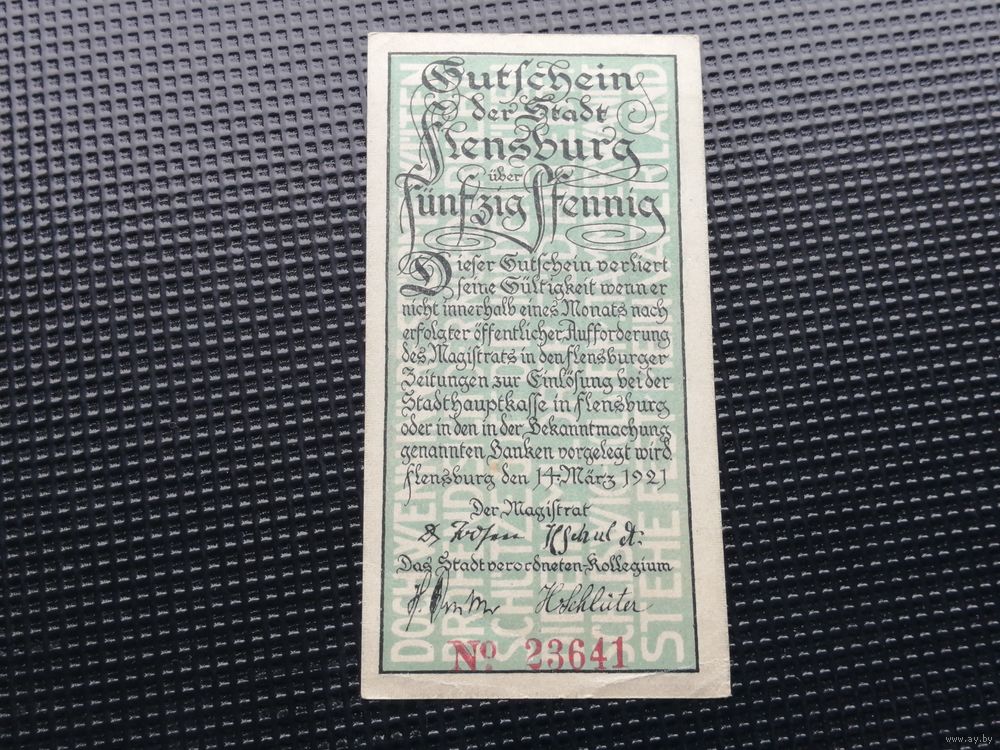 Gutschein
der Stadt
Flensburg
über
Fünfzig Pfennig
Dieser Gutschein verliert
seine Gültigkeit wenn er
nicht innerhalb eines Monats nach
erfolgter öffentlicher Aufforderung
des Magistrats in den Flensburger
Zeitungen zur Einlösung bei der
Stadthauptkasse in Flensburg
oder in den in der Bekanntmachung
genannten Banken vorgelegt wird
Flensburg den 14. März 1921
Der Magistrat
Das Stadtverordneten-Kollegium
H. Schlüter
No 23641
www.ay.by